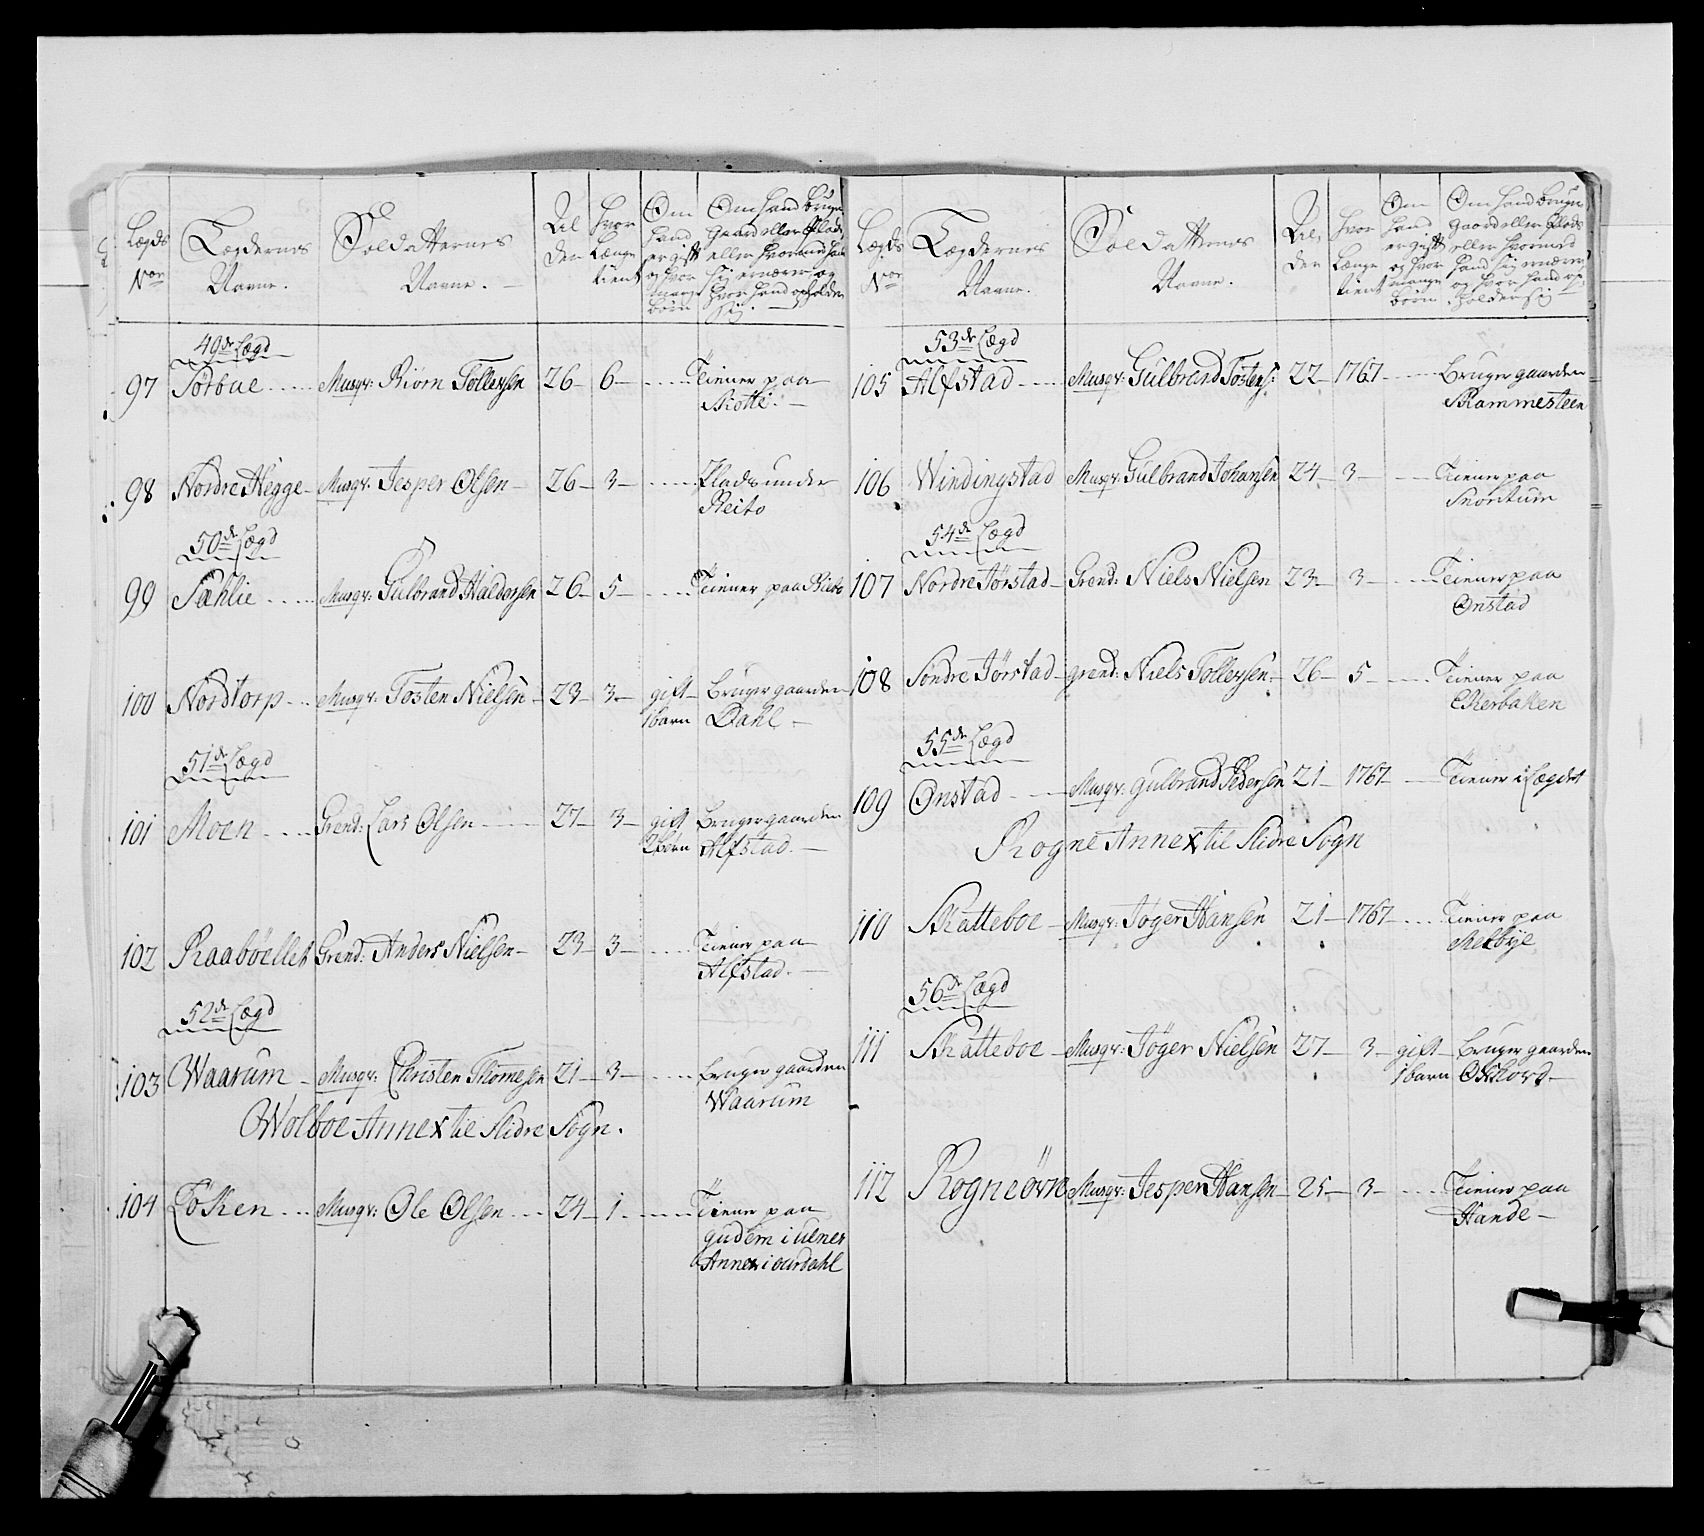 Lægds Nor
Lægdernes Navne.
Soldatternes Navne.
Alder
Hvor Længe tient
Om hand er gift og hvor mange börn
Om hand bruger Gaard eller Plads eller hvormed hand sig ernærer og hvor hand opholder sig.
49de Lægd
97 Sörbue Musqr: Biörn Tollevsen 26 6 Tiener paa
98 Nordre Hegge Musqr: Jesper Olsen 26 3 Plads under
50de Lægd
99 Sæhlie Musqr: Gulbrand Haldorsen 26 5 Tiener paa
100 Nordtorp Musqr: Tosten Nielsen 23 3 gift 1 barn Bruger gaarden Dahl
51de Lægd
101 Moen Grend: Lars Olsen 27 3 gift 2 börn Bruger gaarden Alfstad.
102 Raaböellet Grend: Anders Nielsen 23 3 Tiener paa Alfstad.
52de Lægd
103 Waarum Musqr: Christen Thomesen 21 3 bruger gaarden Waarum
Wolboe Annex til Slidre Sogn.
104 Löken Musqr: Ole Olsen 24 1 Tiener paa gudem i ulnes Annex i ourdahl
Lægds Nor
Lægdernes Navne.
Soldatternes Navne.
Alder
Hvor Længe tient
Om hand er gift og hvor mange börn
Om hand bruger Gaard eller Plads eller hvormed hand sig ernærer og hvor hand opholder sig
53de Lægd
105 Alfstad Musqr: Gulbrand Tostens: 22 1767 Bruger gaarden Rammesteen
106 Windingstad Musqr: Gulbrand Johansen 24 3 Tiener paa
54de Lægd
107 Nordre Jörstad Grend: Niels Nielsen 23 3 Tiener paa Onstad
108 Söndre Jörstad grend: Niels Tollevsen 26 5 Tiener paa Ekerbaken
55de Lægd
109 Onstad Musqr: gulbrand Pedersen 21 1767 Tiener i Lægdet
Rogne Annex til Slidre Sogn
110 Skatteboe Musqr: Jöger Hansen 21 1767 Tiener paa Melbye
56de Lægd
111 Skatteboe Musqr: Jöger Nielsen 27 3 gift 1 barn bruger gaarden
112 Rogneövre Musqr: Jesper Hansen 25 3 Tiener paa Hande